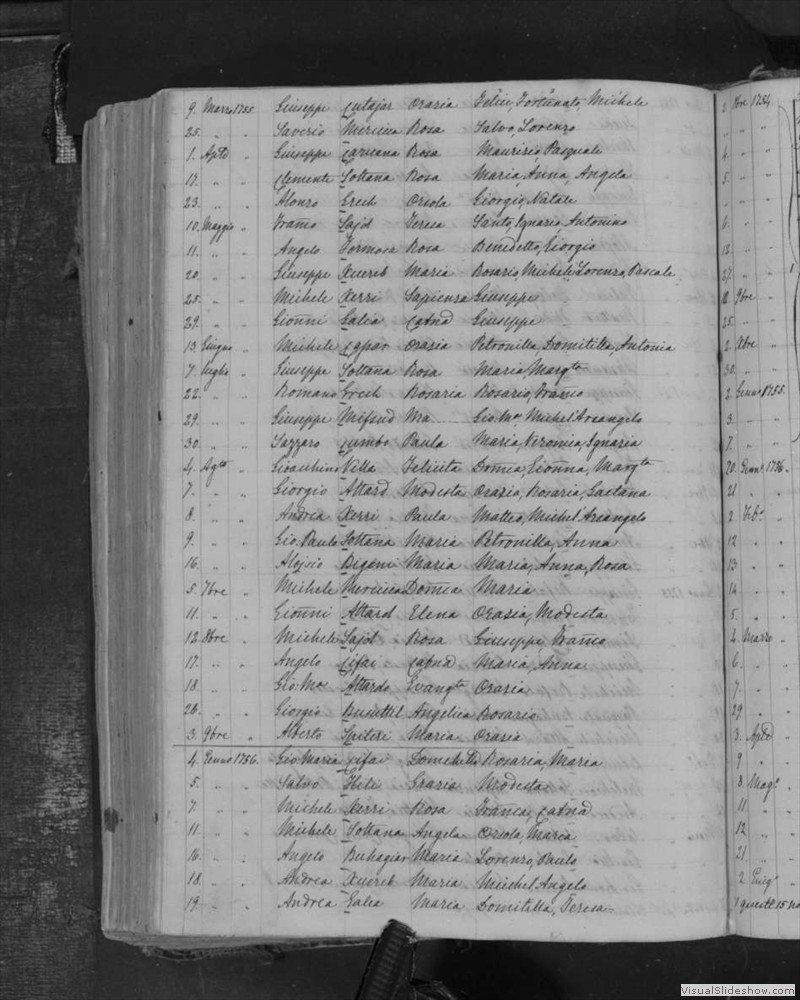 9. Marzo 1755. Giuseppe Cutajar Orasia Felice, Fortunato, Michele
25. " " Saverio Mercieca Rosa Salvo, Lorenzo
1. Aple " Giuseppe Caruana Rosa Maurisio, Pasquale
13. " " Clemente Soltana Rosa Maria, Anna, Angela
23. " " Alonzo Grech Orsola Giorgio, Natale
10. Maggio " Franco Sajd Teresa Santo, Ignazio, Antonino
11. " " Angelo Formosa Rosa Benedetto, Giorgio
20. " " Giuseppe Xuereb Maria Rosario, Michele, Lorenzo, Pascale
25. " " Michele Xerri Sapienza Giuseppe
29. " " Gionni Galea Catna Giuseppe
13. Giugno " Michele Caspar Orasia Petronilla, Domitilla, Antonia
7. Luglio " Giuseppe Soltana Rosa Maria, Margta
22. " " Romano Grech Rosaria Rosario, Franco
29. " " Giuseppe Mifsud Ma Gio. Ma Michel'Arcangelo
30. " " Lazzaro Cumbo Paula Maria, Veronica, Ignazia
4. Agto " Gioachino Villa Felicita Domca, Gionna, Margta
7. " " Giorgio Attard Modesta Orasia, Rosaria, Gaetana
8. " " Andrea Xerri Paula Matteo, Michel Arcangelo
9. " " Gio. Paulo Soltana Maria Petronilla, Anna
16. " " Aloysio Bigeni Maria Maria, Anna, Rosa
5. 7bre " Michele Mercieca Domca Maria
11. " " Gionni Attard Elena Orasia, Modesta
12. 8bre " Michele Sajd Rosa Giuseppe, Franco
17. " " Angelo Cifai Catna Maria, Anna
18. " " Gio: Ma Attardo Evangta Orazia
26. " " Giorgio Busuttil Angelica Rosario
3. 9bre " Alberto Spiteri Maria Orasia
4. Genno 1756. Gio. Maria Cifai Domca Rosaria, Maria
5. " " Salvo Hili Grazia Modesta
7. " " Michele Xerri Rosa Franca, Catna
11. " " Michele Soltana Angela Orsola, Maria
16. " " Angelo Buhagiar Maria Lorenzo, Paulo
18. " " Andrea Xuereb Maria Michel Angelo
19. " " Andrea Galea Maria Domitilla, Teresa
2. Xbre 1754.
" "
4. "
5. "
" "
6. "
12. "
27. "
11. 9bre
25. "
2. Xbre
30. "
2. Genno 1755.
3. "
7. "
20. Genno 1756.
21. "
2. Feb.
12 "
13 "
14 "
5. "
4. Marzo
6. "
7. "
29. "
3. Aple
9 "
8. Mago
11. "
12 "
21. "
2 Giugo
VisualSlideshow.com